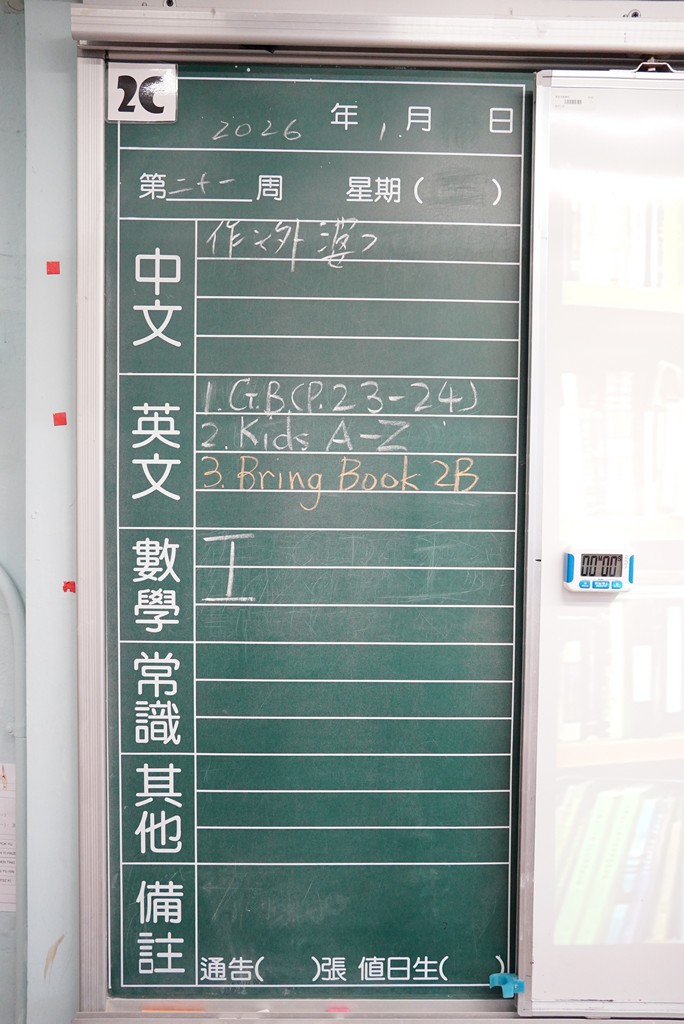 2C
2026 年 1 月 日
第二十一周 星期( )
中文
作:外婆
英文
1. G.B.(P.23-24)
2. Kids A-Z
3. Bring Book 2B
數學
工
常識
其他
備註
通告( )張 值日生( )
00 00